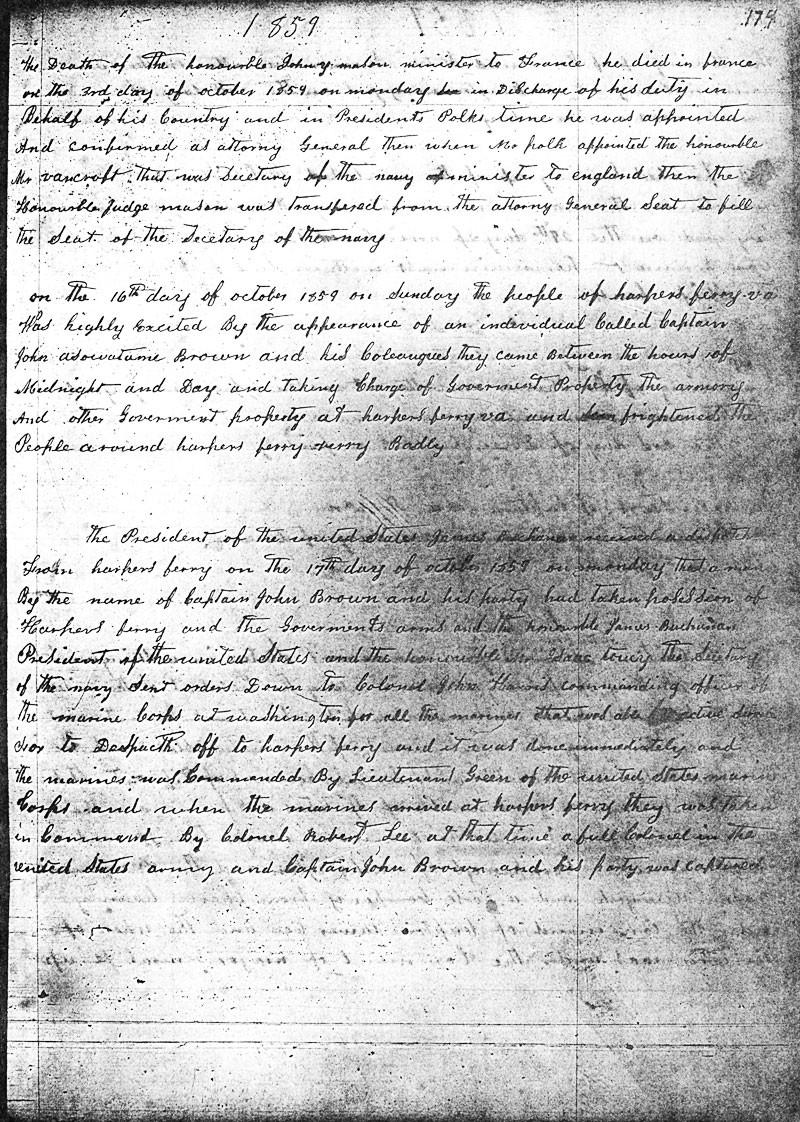 1859
174
the Death of the honourable John y mason minister to France he died in france
on the 3rd day of october 1859 on monday in Discharge of his duty in
Behalf of his Country and in Presidents Polks time he was appointed
And confirmed as attorny General then when Mr polk appointed the honourable
Mr vancroft that was Secetary of the navy minister to england then the
Honourable Judge mason was Transfered from the attorny General Seat to fill
the Seat of the Secetary of the navy
on the 16th day of october 1859 on Sunday the people of harpers ferry va
Was highly Excited By the appearance of an individual Called Captain
John asowatame Brown and his Coleaugues they came Between the hours of
Midnight and Day and taking Charge of Goverment Property the armory
And other Goverment property at harpers ferry va and frightened the
People around harpers ferry verry Badly
the President of the united States James Buchanan received a dispatch
From harpers ferry on the 17th day of october 1859 on monday that a man
By the name of Captain John Brown and his party had taken posession of
Harpers ferry and the Goverments arms and the honourable James Buchanan
President of the united States and the honourable Mr Isaac toucy the Secetary
of the navy Sent orders Down to Colonel John Harris commanding officer of
the marine Corps at washington for all the marines that was able active
for to Despacth off to harpers ferry and it was done immediately and
the marines was Commanded By Lieutenant Green of the united States marine
Corps and when the marines arrived at harpers ferry they was taken
in Command By Colonel Robert Lee at that time a full Colonel in the
united States army and Captain John Brown and his party was captured